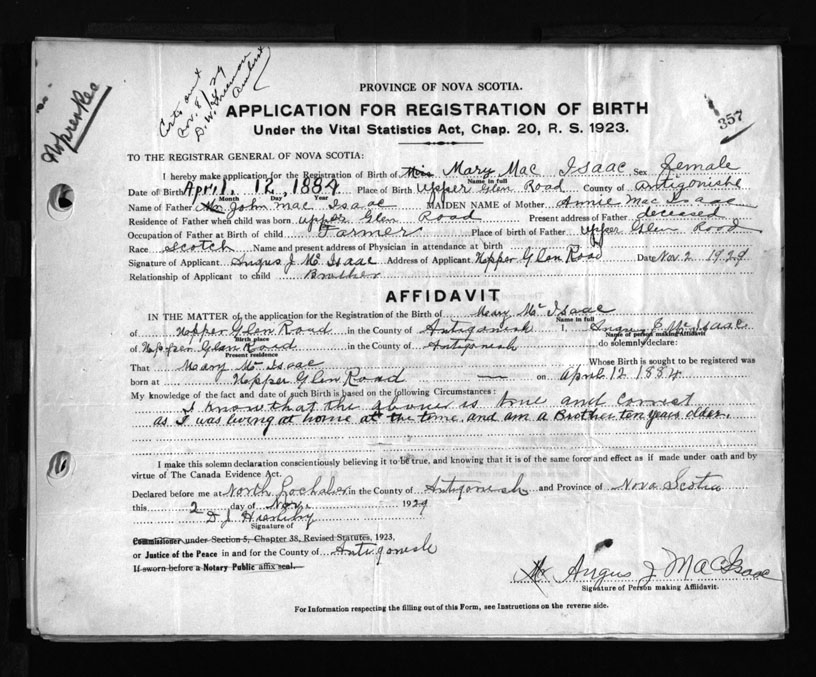 Nov. 8/29
No pren Rec
357
PROVINCE OF NOVA SCOTIA.
APPLICATION FOR REGISTRATION OF BIRTH
Under the Vital Statistics Act, Chap. 20, R. S. 1923.
TO THE REGISTRAR GENERAL OF NOVA SCOTIA:
I hereby make application for the Registration of Birth of Miss Mary Mac Isaac Sex Female
Name in full
Date of Birth April. 12, 1884 Place of Birth Upper Glen Road County of Antigonishe
Month Day Year
Name of Father Mr John Mac Isaac MAIDEN NAME of Mother Annie Mac Isaac
Residence of Father when child was born upper Glen Road Present address of Father deceased
Occupation of Father at Birth of child Farmer Place of birth of Father upper Glen Road
Race Scotch Name and present address of Physician in attendance at birth
Signature of Applicant Angus J Mc Isaac Address of Applicant Upper Glen Road Date Nov. 2 1929
Relationship of Applicant to child Brother
AFFIDAVIT
IN THE MATTER of, the application for the Registration of the Birth of Mary Mc Isaac
Name in full
of Upper Glen Road in the County of Antigonish I, Angus Mc Isaac
Birth place Name of person making Affidavit
of Upper Glen Road in the County of Antigonish do solemnly declare:
Present residence
That Mary Mc Isaac Whose Birth is sought to be registered was
born at Upper Glen Road on April 12 1884
My knowledge of the fact and date of such Birth is based on the following Circumstances:
I know that the above is true and correct
as I was living at home at the time and am a Brother ten years older.
I make this solemn declaration conscientiously believing it to be true, and knowing that it is of the same force and effect as if made under oath and by
virtue of The Canada Evidence Act.
Declared before me at North Lochaber in the County of Antigonish and Province of Nova Scotia
this 2 day of Nov. 1929
D J
Signature of
Commissioner under Section 5, Chapter 38, Revised Statutes, 1923,
or Justice of the Peace in and for the County of Antigonish
If sworn before a Notary Public affix seal.
Mr Angus J MacIsaac
Signature of Person making Affidavit.
For Information respecting the filling out of this Form, see Instructions on the reverse side.